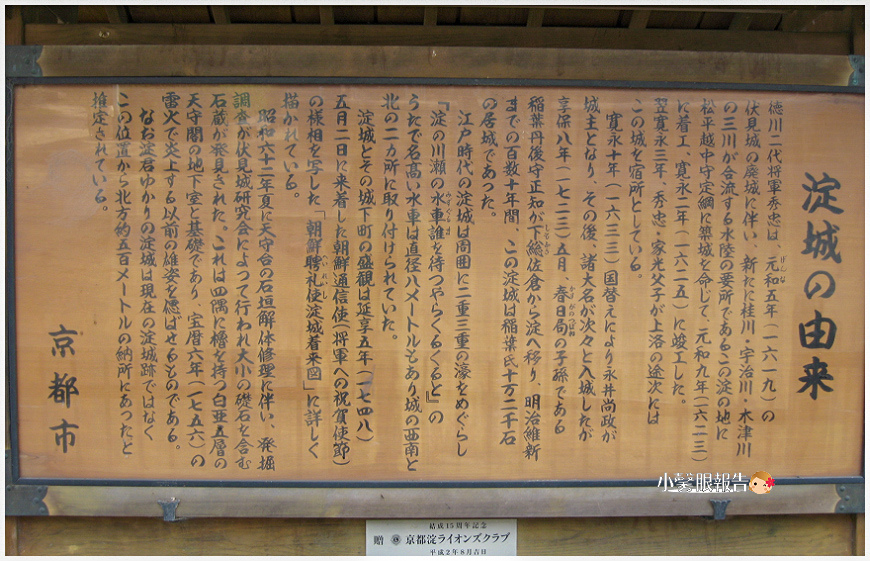 淀城の由来
徳川二代将軍秀忠は、元和五年(一六一九)の
伏見城の廃城に伴い、新たに桂川・宇治川・木津川
の三川が合流する水陸の要所であるこの淀の地に
松平越中守定綱に築城を命じて、元和九年(一六二三)
に着工、寛永二年(一六二五)に竣工した。
翌寛永三年、秀忠・家光父子が上洛の途次には
この城を宿所としている。
寛永十年(一六三三)国替えにより永井尚政が
城主となり、その後、諸大名が次々と入城したが
享保八年(一七二三)五月、春日局の子孫である
稲葉丹後守正知が下総佐倉から淀へ移り、明治維新
までの百数十年間、この淀城は稲葉氏十万二千石
の居城であった。
江戸時代の淀城は周囲に二重三重の濠をめぐらし
『淀の川瀬の水車誰を待つやらくるくると』の
うたで名高い水車は直径八メートルもあり城の西南と
北の二カ所に取り付けられていた。
淀城とその城下町の盛観は延享五年(一七四八)
五月二日に来着した朝鮮通信使(将軍への祝賀使節)
の様相を写した「朝鮮聘礼使淀城着来図」に詳しく
描かれている。
昭和六十二年夏に天守台の石垣解体修理に伴い、発掘
調査が伏見城研究会によって行われ大小の礎石を含む
石蔵が発見された。これは四隅に櫓を持つ白亜五層の
天守閣の地下室と基礎であり、宝暦六年(一七五六)の
雷火で炎上する以前の雄姿を偲ばせるものである。
なお淀君ゆかりの淀城は現在の淀城跡ではなく
この位置から北方約五百メートルの納所にあったと
推定されている。
京都市
結成15周年記念
贈 京都淀ライオンズクラブ
平成2年8月吉日
小䒕眼報告